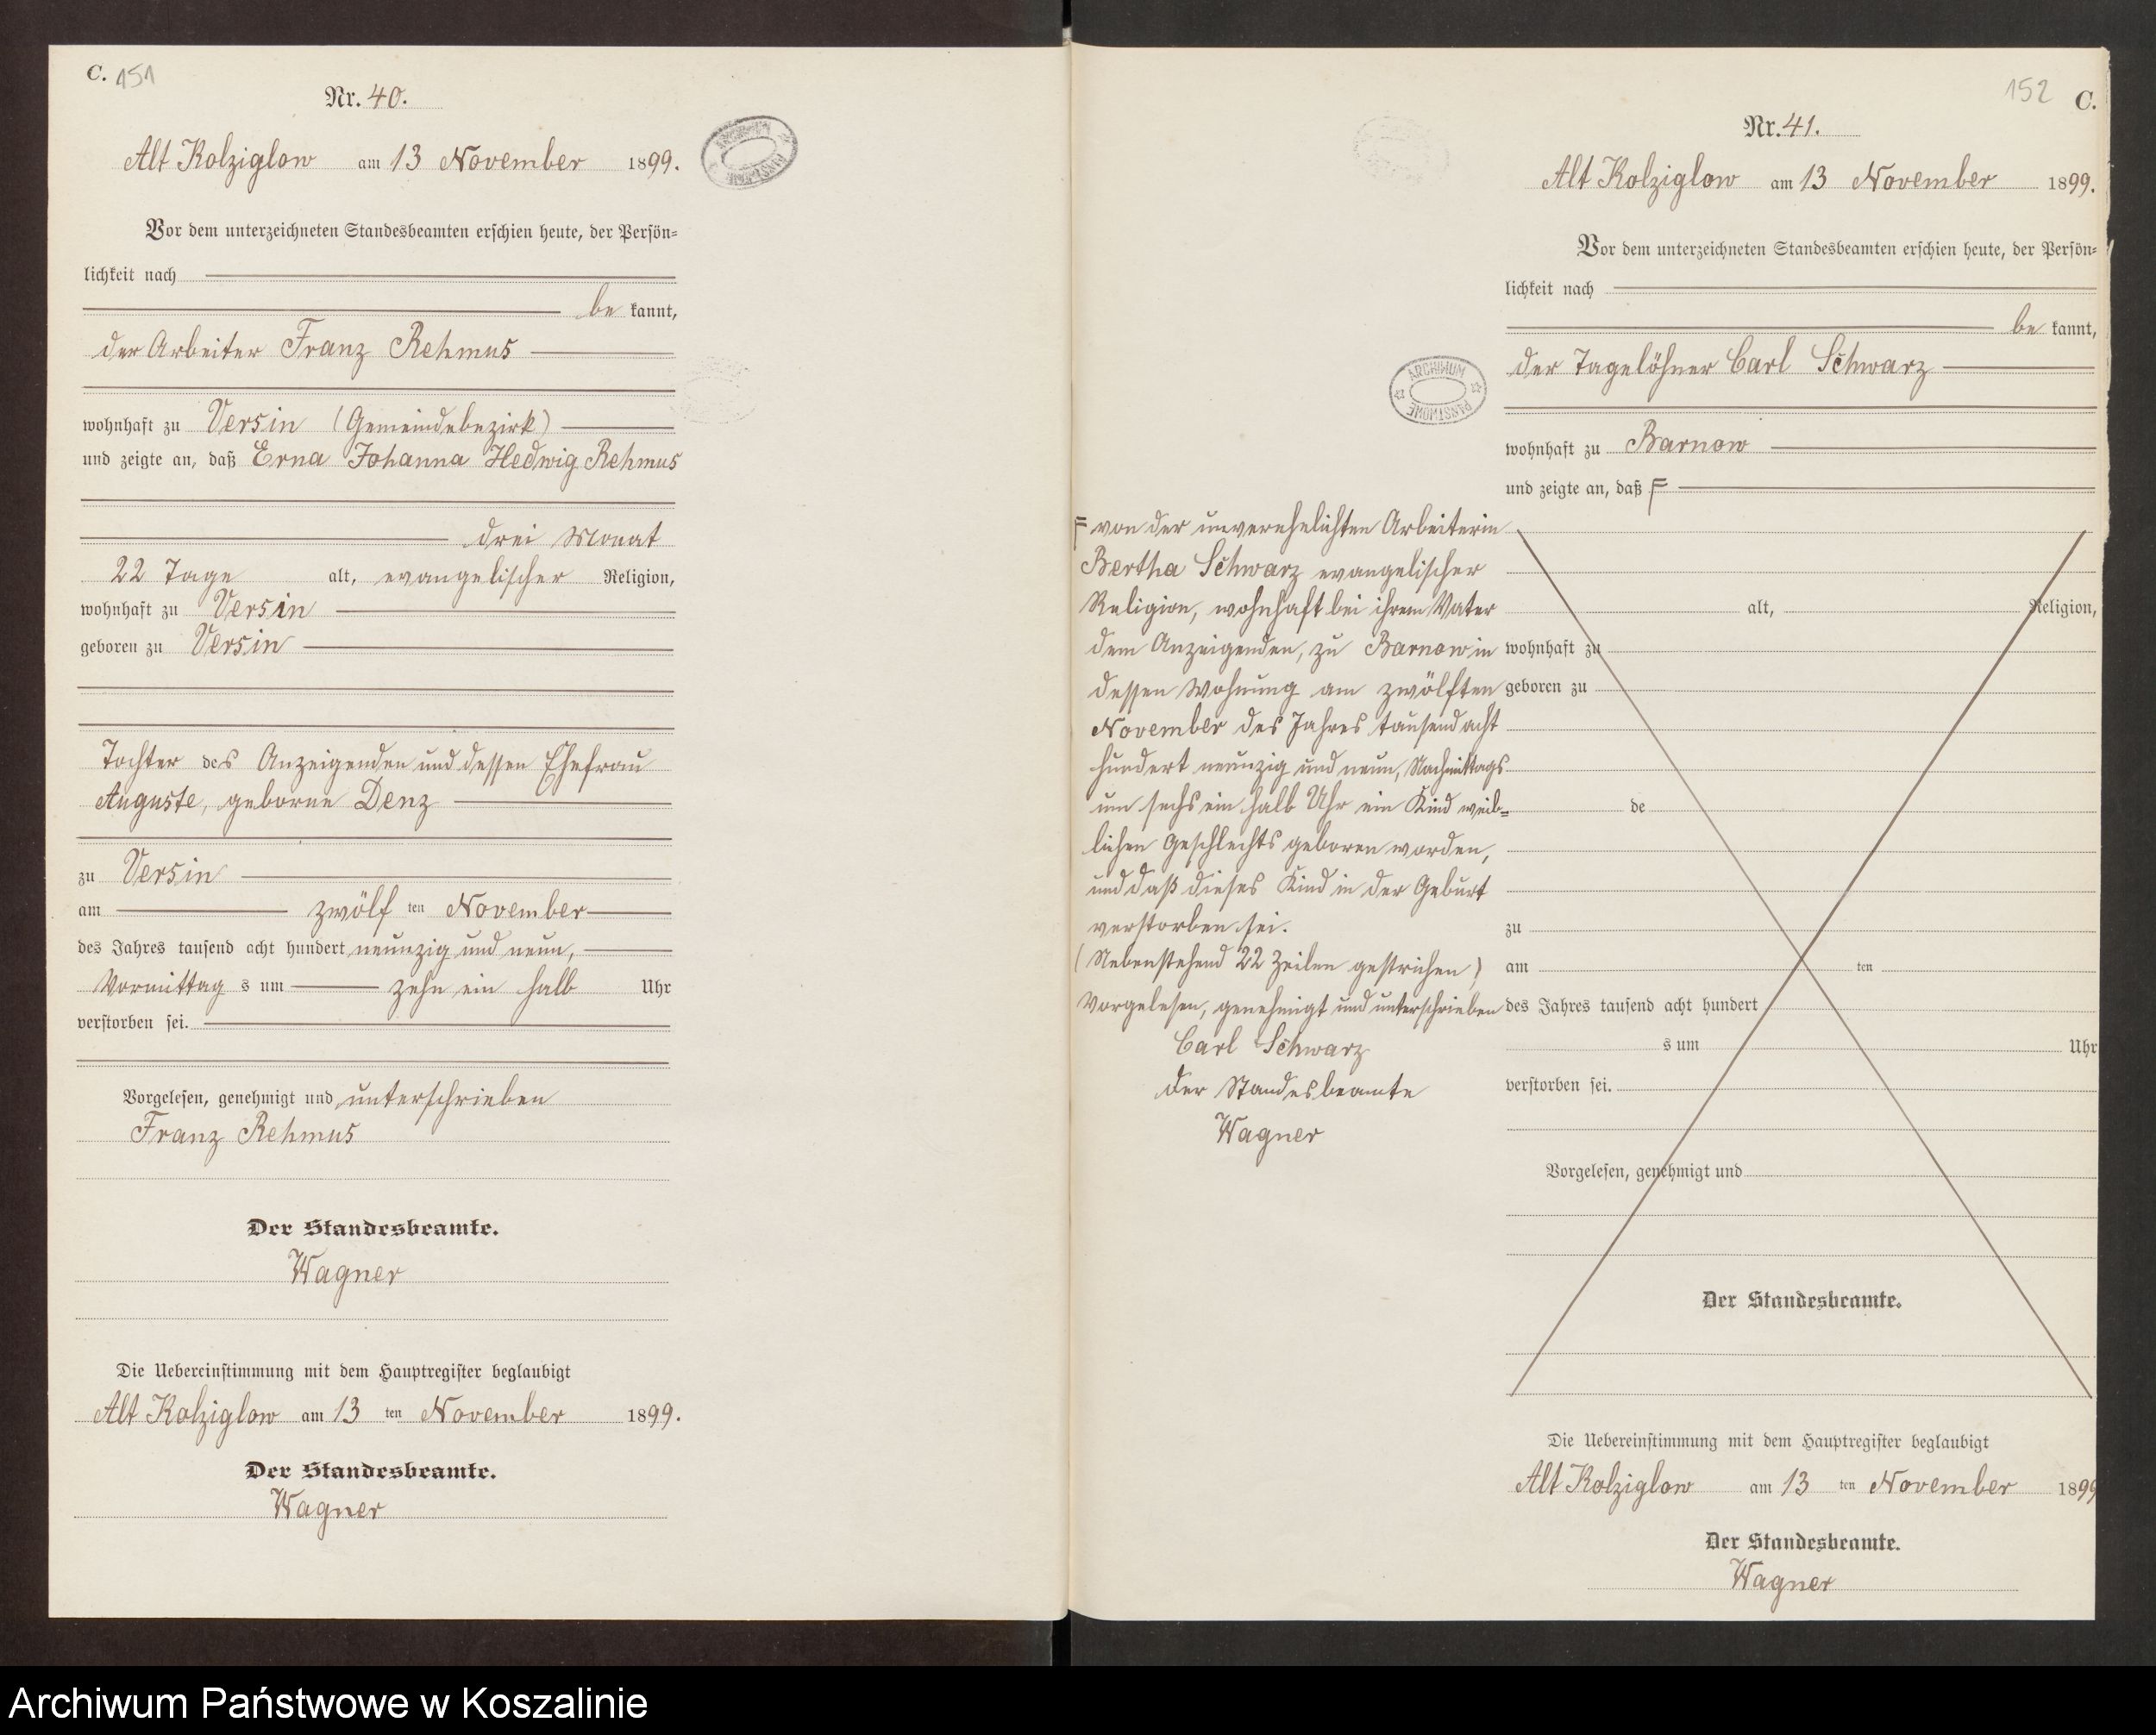 C. 151
Nr. 40.
Alt Kolziglow am 13 November 1899.
Vor dem unterzeichneten Standesbeamten erschien heute, der Persön=
lichkeit nach
be kannt,
der Arbeiter Franz Rehmus
wohnhaft zu Versin (Gemeindebezirk)
und zeigte an, daß Erna Johanna Hedwig Rehmus
drei Monat
22 Tage alt, evangelischer Religion,
wohnhaft zu Versin
geboren zu Versin
Tochter des Anzeigenden und dessen Ehefrau
Auguste, geborne Denz
zu Versin
am zwölf ten November
des Jahres tausend acht hundert neunzig und neun,
Vormittag s um zehn ein halb Uhr
verstorben sei.
Vorgelesen, genehmigt und unterschrieben
Franz Rehmus
Der Standesbeamte.
Wagner
Die Uebereinstimmung mit dem Hauptregister beglaubigt
Alt Kolziglow am 13 ten November 1899.
Der Standesbeamte.
Wagner
ARCHIWUM PAŃSTWOWE
152 C.
Nr. 41.
Alt Kolziglow am 13 November 1899.
Vor dem unterzeichneten Standesbeamten erschien heute, der Persön=
lichkeit nach
be kannt,
der Tagelöhner Carl Schwarz
ARCHIWUM PAŃSTWOWE
wohnhaft zu Barnow
und zeigte an, daß F
F von der unverehelichten Arbeiterin
Bertha Schwarz evangelischer
Religion, wohnhaft bei ihrem Vater
dem Anzeigenden, zu Barnow in
dessen Wohnung am zwölften
November des Jahres tausend acht
hundert neunzig und neun, Nachmittags
um sechs ein halb Uhr ein Kind weib=
lichen Geschlechts geboren worden,
und daß dieses Kind in der Geburt
verstorben sei.
(Nebenstehend 22 Zeilen gestrichen)
Vorgelesen, genehmigt und unterschrieben
Carl Schwarz
Der Standesbeamte
Wagner
alt, Religion,
wohnhaft zu
geboren zu
de
zu
am ten
des Jahres tausend acht hundert
s um Uhr
verstorben sei.
Vorgelesen, genehmigt und
Der Standesbeamte.
Die Uebereinstimmung mit dem Hauptregister beglaubigt
Alt Kolziglow am 13 ten November 1899
Der Standesbeamte.
Wagner
Archiwum Państwowe w Koszalinie